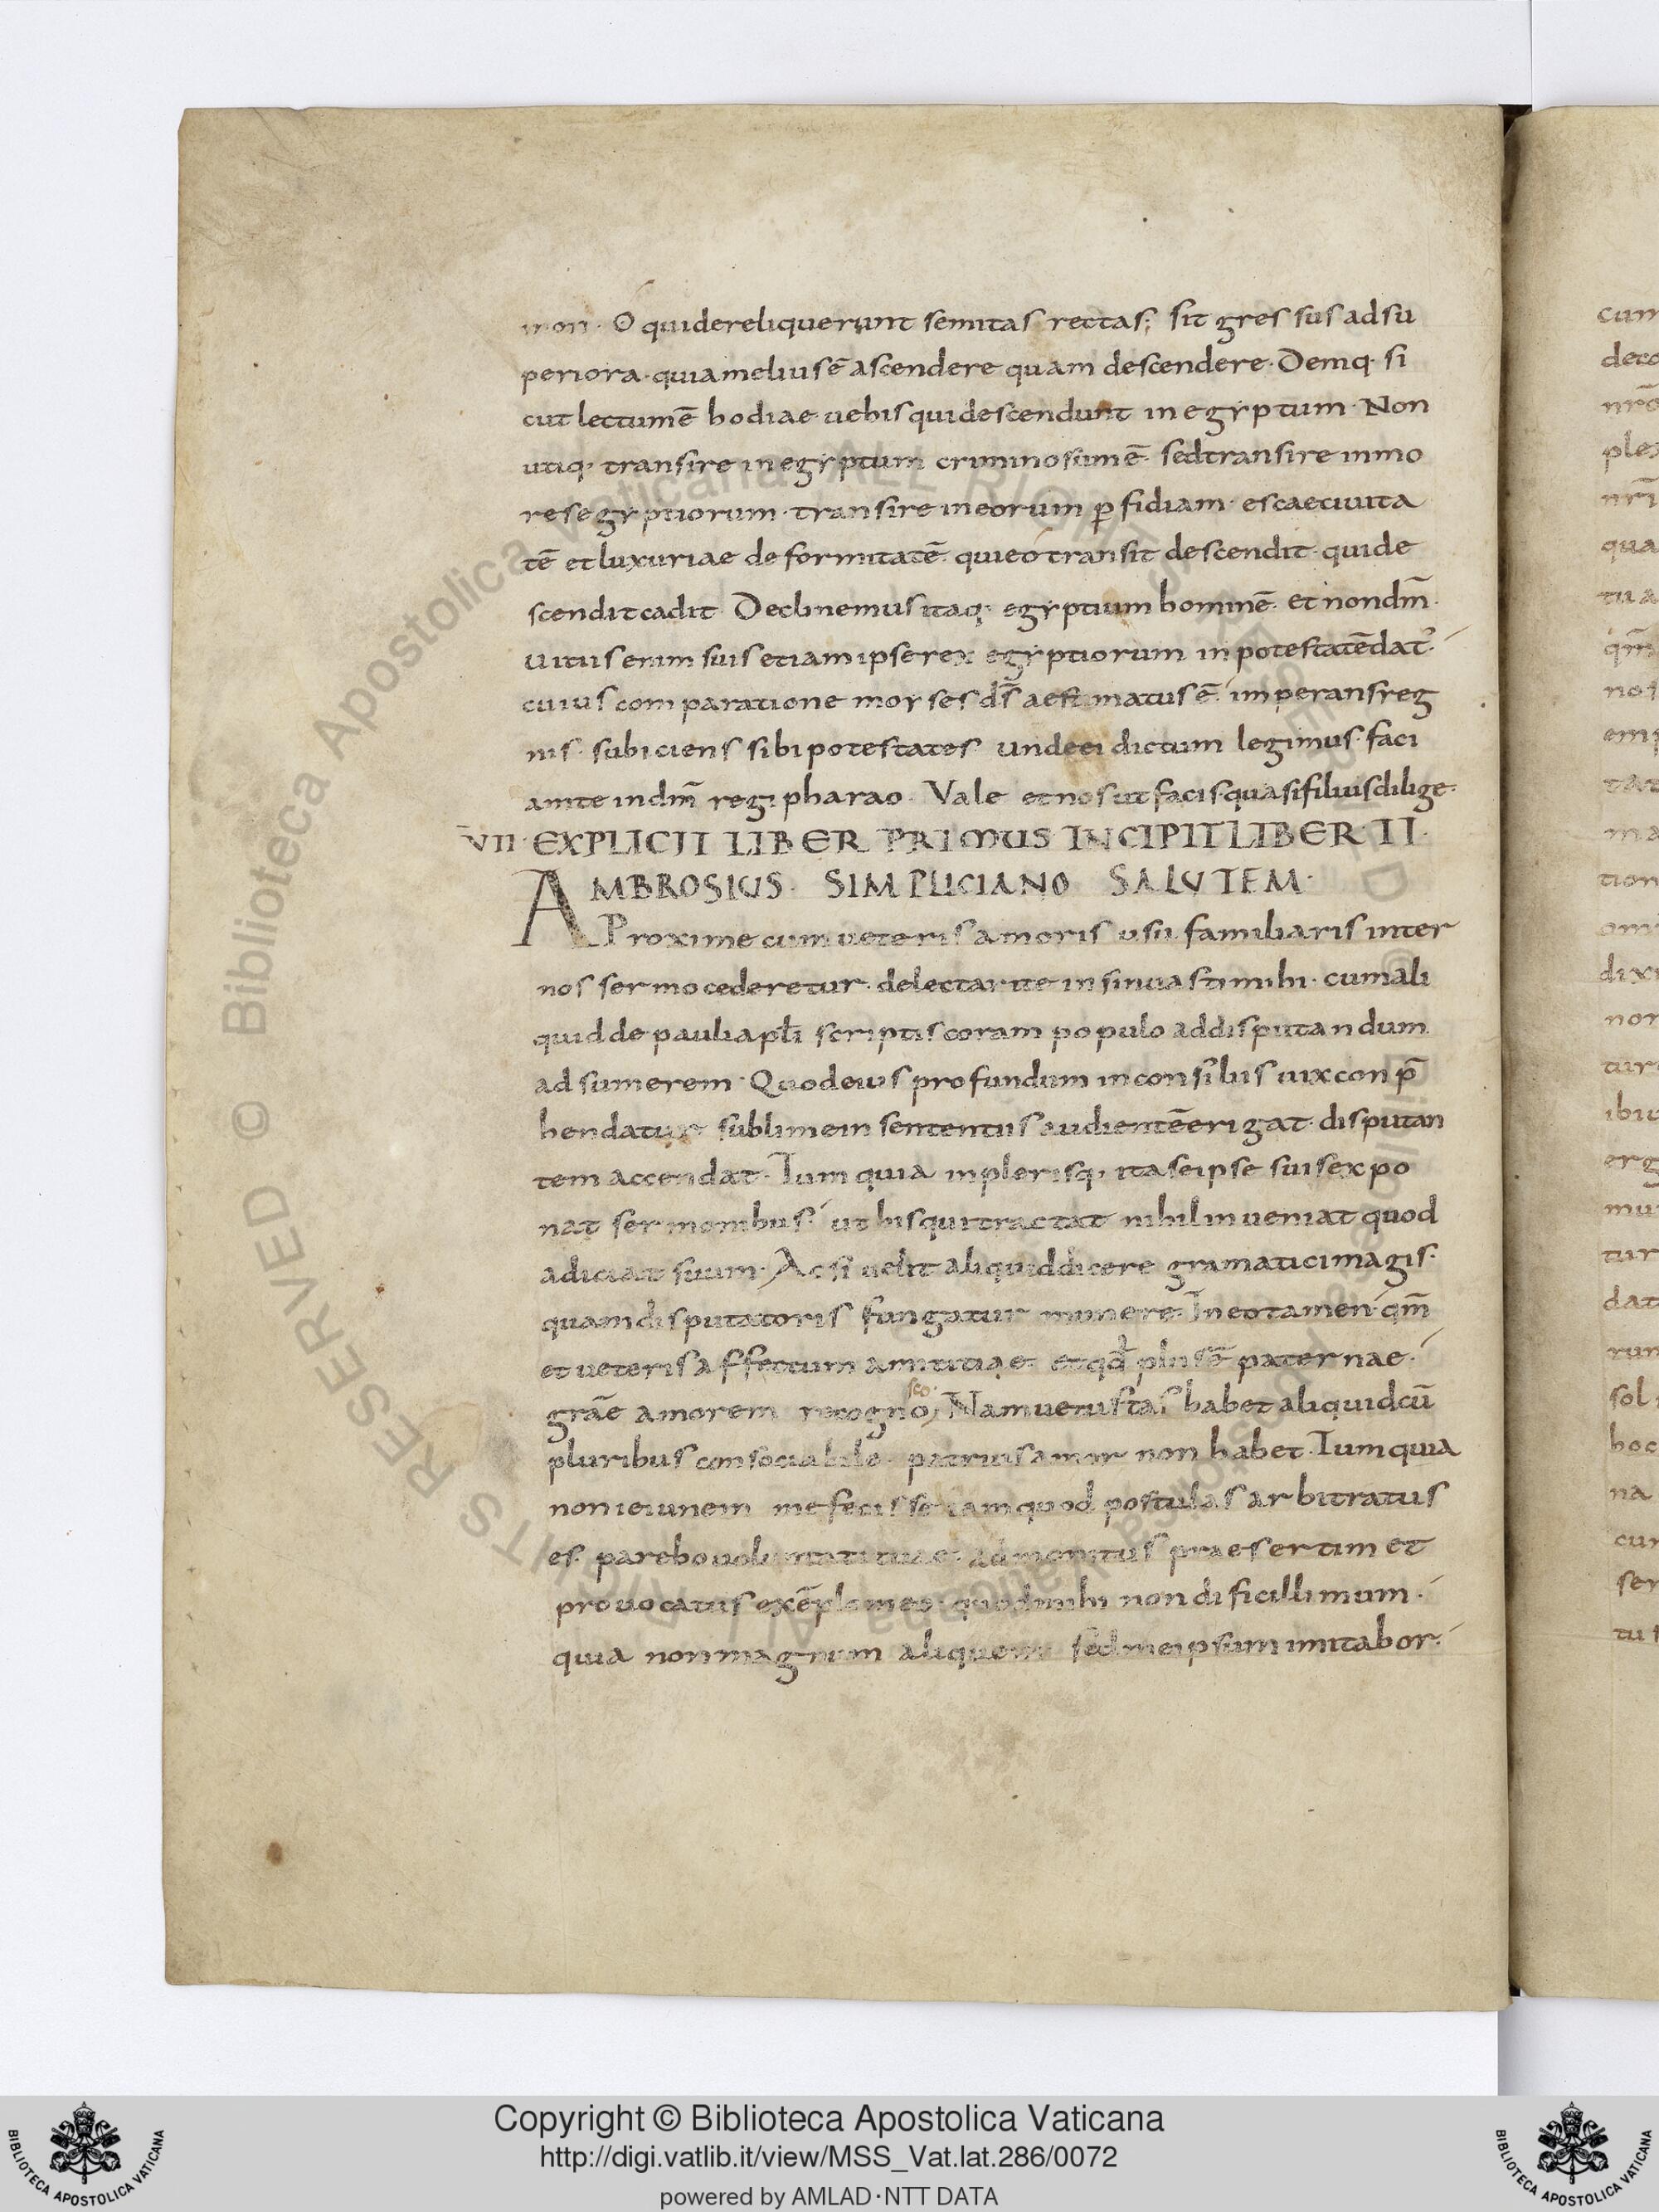 mon. O qui dereliquerunt semitas rectas; sit gressus ad su
periora. quia melius ē ascendere quam descendere. Deniq. si
cut lectum ē hodiae uehis qui descendunt in egyptum. Non
utiq. transire in egyptum criminosum ē. sed transire in mo
res egyptiorum. transire in eorum p̄fidiam. escaeciuita
tē et luxuriae deformitatē. qui eo transit descendit. qui de
scendit cadit. Declinemus itaq; egyptium hominē. et non dm̄.
Uitus enim suis etiam ipse rex egyptiorum in potestatē dat᷒.
cuius comparatione moyses ds̄ aestimatus ē. imperans reg
nis. subiciens sibi potestates unde ei dictum legimus. faci
am te in dm̄ regi pharao. Vale et nos ut facis quasi filius dilige.
VII. EXPLICIT LIBER PRIMUS INCIPIT LIBER II.
AMBROSIUS. SIMPLICIANO SALUTEM.
Proxime cum ueteris amoris usu familiaris inter
nos sermo cederetur. delectari te insinuasti mihi. cum ali
quid de pauli apłi scriptis coram populo ad disputandum
adsumerem. Quod eius profundum in consiliis uix conp̄
hendatur sublime in sententiis audientē erigat. disputan
tem accendat. Tum quia in plerisq; ita se ipse suis expo
nat sermonibus. ut his qui tractat nihil inueniat quod
adiciat suum. Ac si uelit aliquid dicere gramatici magis.
quam disputatoris fungatur munere. In eo tamen qm̄
et ueteris affectum amititiae. et qđ plus ē paternae.
grāe amorem recognosco. Nam uetustas habet aliquid cū
pluribus consociabile. patrius amor non habet. Tum quia
non ieiunem me fecisse iam quod postulas arbitratus
es. parebo uoluntati tuae. admonitus praesertim et
prouocatus exēplo meo. quod mihi non dificillimum.
quia non magnum aliquem sed me ipsum imitabor.
cum
deco
nrō
ples
nrī
qua
tu a
qm̄
nos
emp
tat
ma
tion
om
dixi
nor
tur
ibiu
erg
mu
tur
dat
rum
sol
hoc
na
cur
ser
tu s
© Biblioteca Apostolica Vaticana ALL RIGHTS RESERVED
BIBLIOTECA APOSTOLICA VATICANA
Copyright © Biblioteca Apostolica Vaticana
http://digi.vatlib.it/view/MSS_Vat.lat.286/0072
powered by AMLAD·NTT DATA
BIBLIOTECA APOSTOLICA VATICANA